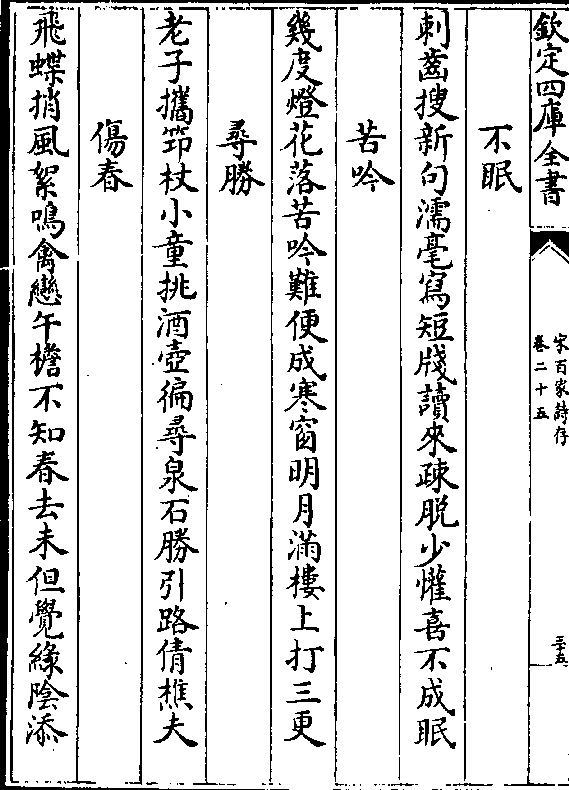 欽定四庫全書
宋百家詩存
卷二十五
三十五
不眠
刺齒搜新句濡毫寫短牋讀來疎脫少懽喜不成眠
苦吟
幾度燈花落苦吟難便成寒窗明月滿樓上打三更
尋勝
老子攜筇杖小童挑酒壺徧尋泉石勝引路倩樵夫
傷春
飛蝶捎風絮鳴禽戀午檐不知春去未但覺緣陰添